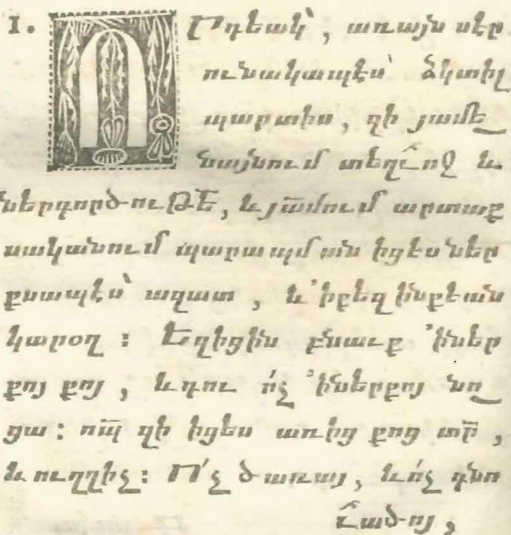 1. ՈՐդեակ՝, առայս ներ
ունակապէս՝ ձկտիլ
պարտիս, զի յամե_
նայնում տեղւ̃ոջ և
ներգործութե̄, և յա̄մում արտաք
սականում պարապմ ան իցես ներ
քսապէս՝ ազատ, և ՚ի քեզ ինքեան
կարօղ ։ Եղիցին բնաւք ՚ի ներ
քոյ քոյ, և դու ո՛չ ՚ի ներքոյ նո_
ցա։ ոպ̄ զի իցես առից քոց տր̄,
և ուղղիչ։ Ո՛չ ծառայ, և ո՛չ գնո
ւ̃ածոյ,